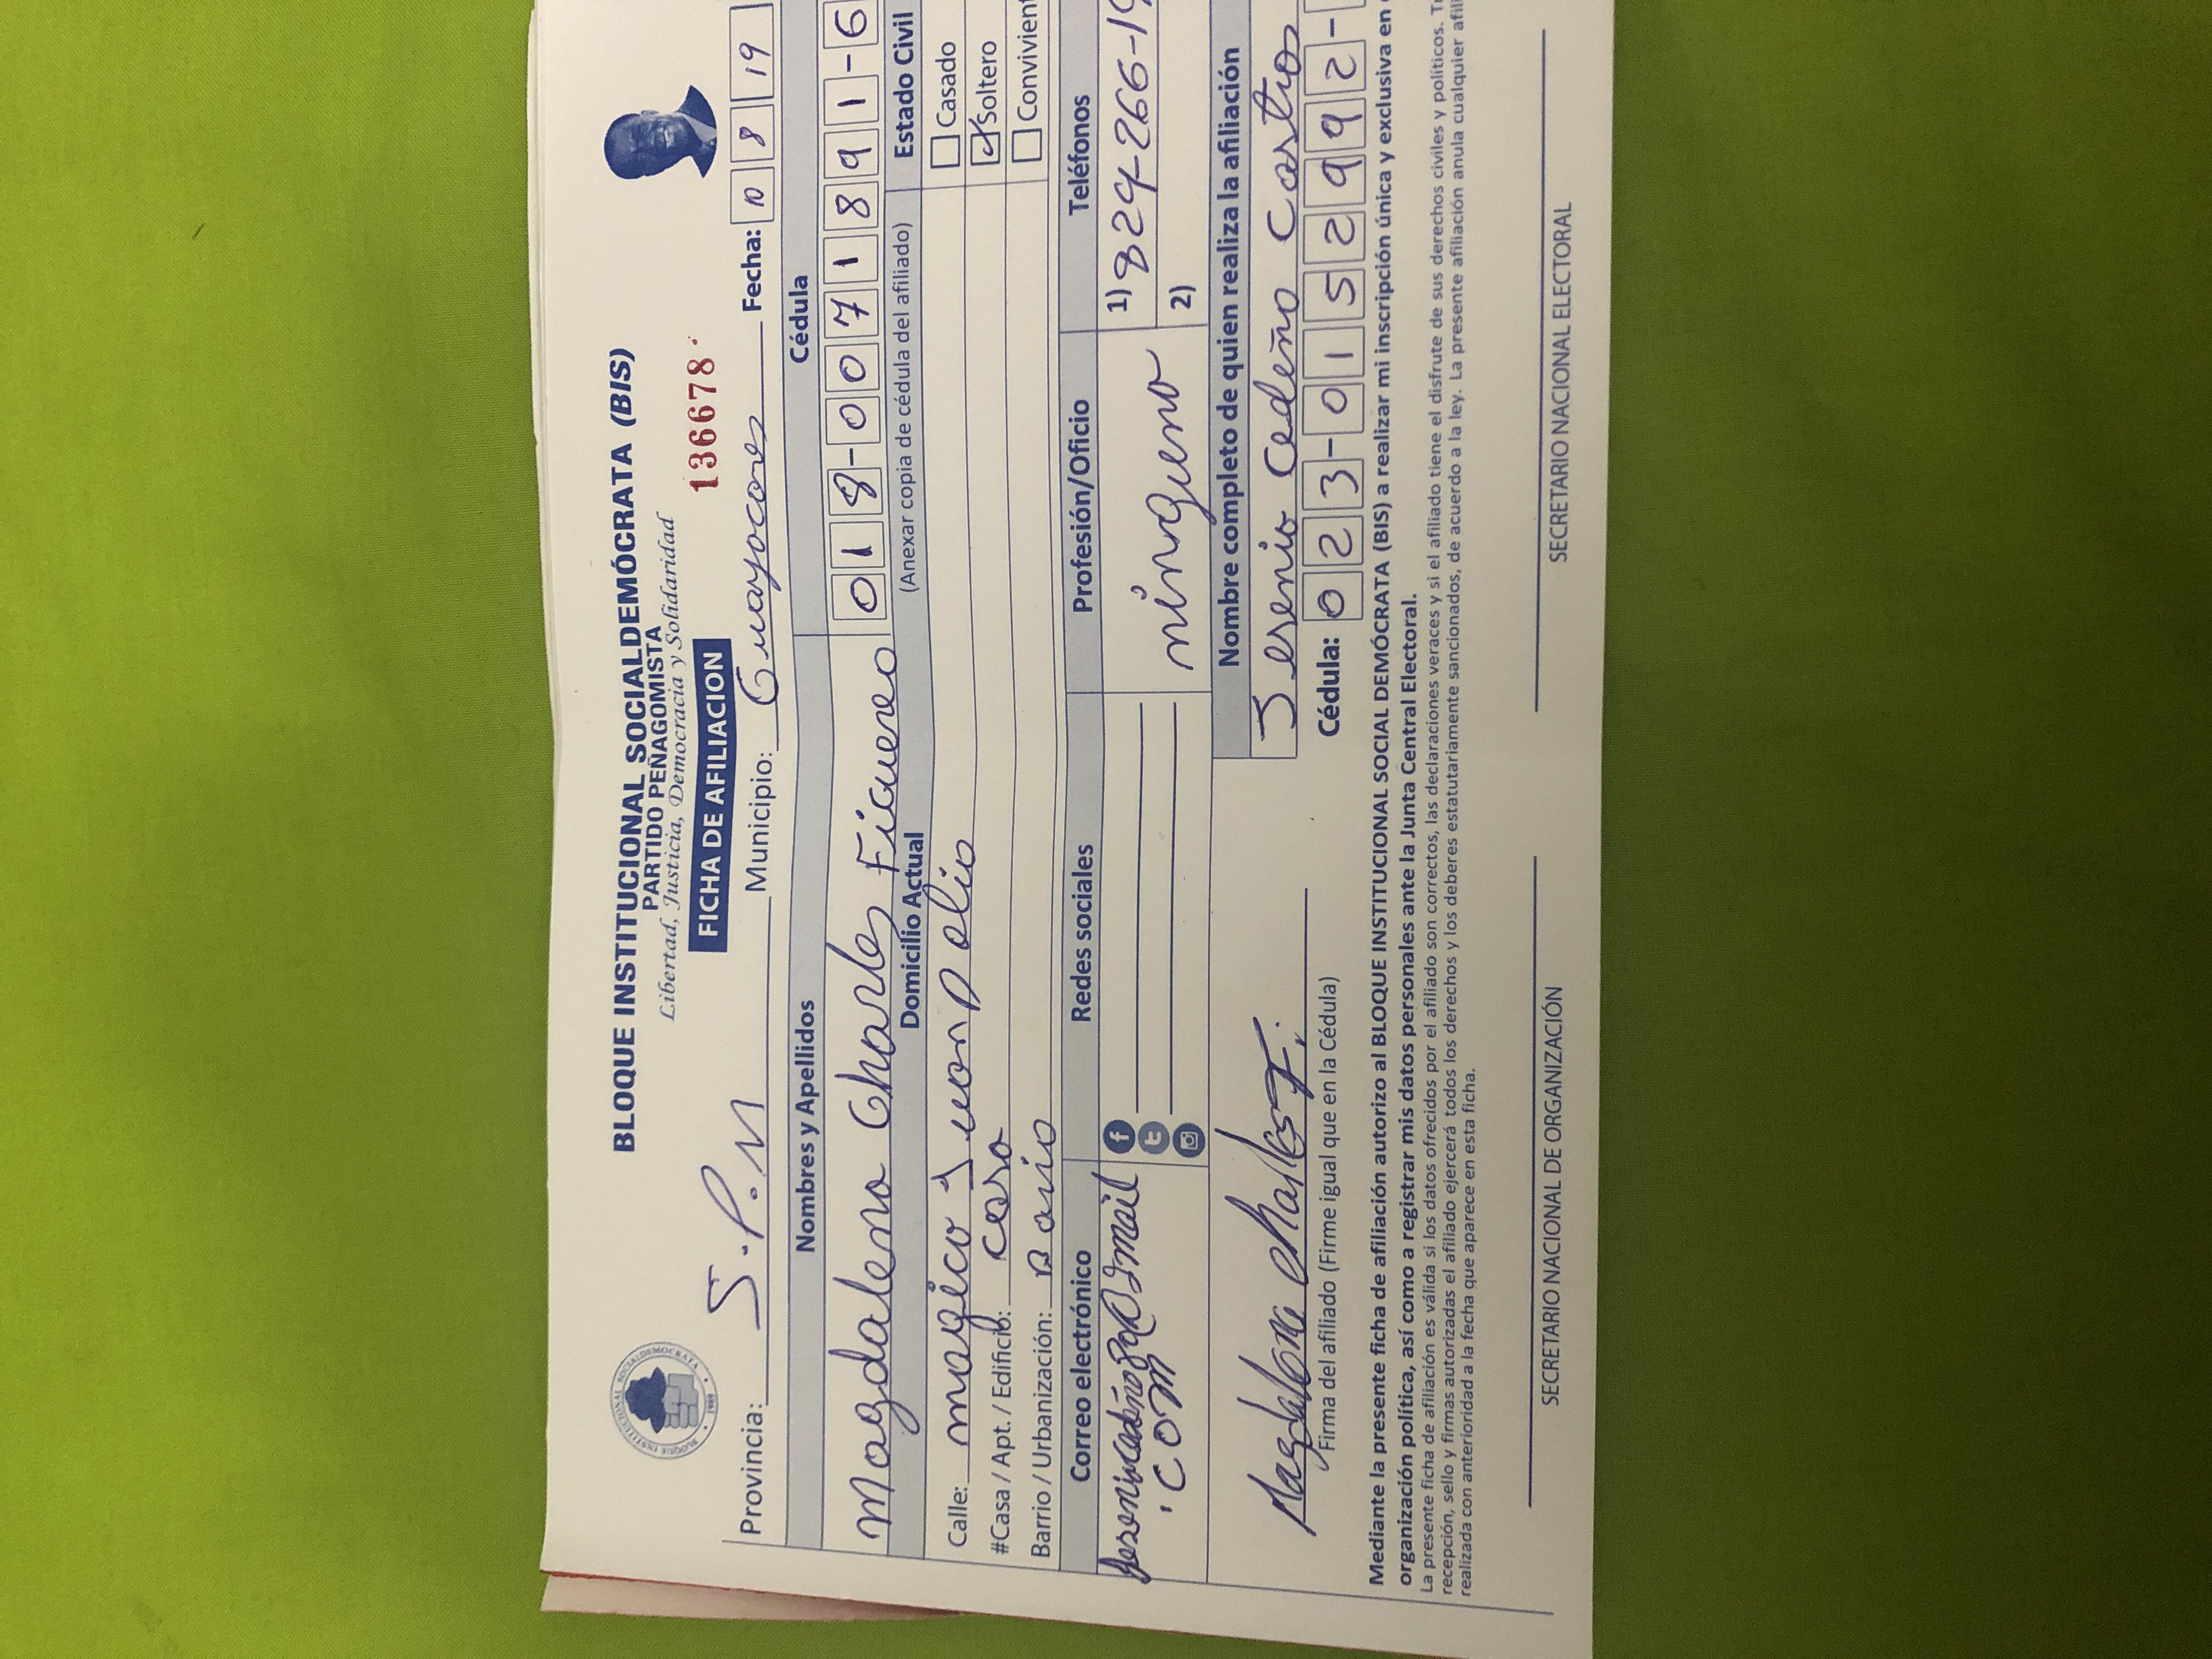 BLOQUE INSTITUCIONAL SOCIALDEMÓCRATA (BIS)
PARTIDO PEÑAGOMISTA
Libertad, Justicia, Democracia y Solidaridad
FICHA DE AFILIACION
136678
Provincia: S.P.M Municipio: Guayacanes Fecha: 10 8 19
Nombres y Apellidos Cédula
Magdalena Charles Figuereo 018-0071891-6
Domicilio Actual (Anexar copia de cédula del afiliado) Estado Civil
Calle: magico Juan Polio Casado
#Casa / Apt. / Edificio: casa Soltero
Barrio / Urbanización: Convivien
Correo electrónico Redes sociales Profesión/Oficio Teléfonos
1) 824-266-19
.com ninguno 2)
Nombre completo de quien realiza la afiliación
Jesenia Cedeño Castro
Cédula: 023-0152992-
Magdalena Charles F.
Firma del afiliado (Firme igual que en la Cédula)
Mediante la presente ficha de afiliación autorizo al BLOQUE INSTITUCIONAL SOCIAL DEMÓCRATA (BIS) a realizar mi inscripción única y exclusiva en
organización política, así como a registrar mis datos personales ante la Junta Central Electoral.
La presente ficha de afiliación es válida si los datos ofrecidos por el afiliado son correctos, las declaraciones veraces y si el afiliado tiene el disfrute de sus derechos civiles y políticos.
recepción, sello y firmas autorizadas el afiliado ejercerá todos los derechos y los deberes estatutariamente sancionados, de acuerdo a la ley. La presente afiliación anula cualquier afili
realizada con anterioridad a la fecha que aparece en esta ficha.
SECRETARIO NACIONAL DE ORGANIZACIÓN SECRETARIO NACIONAL ELECTORAL